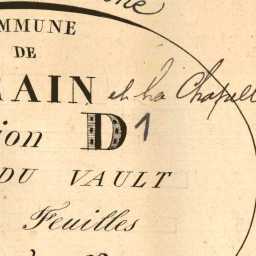 MMUNE
DE
RAIN et la Chapell
ion D1
DU VAULT
Feuilles